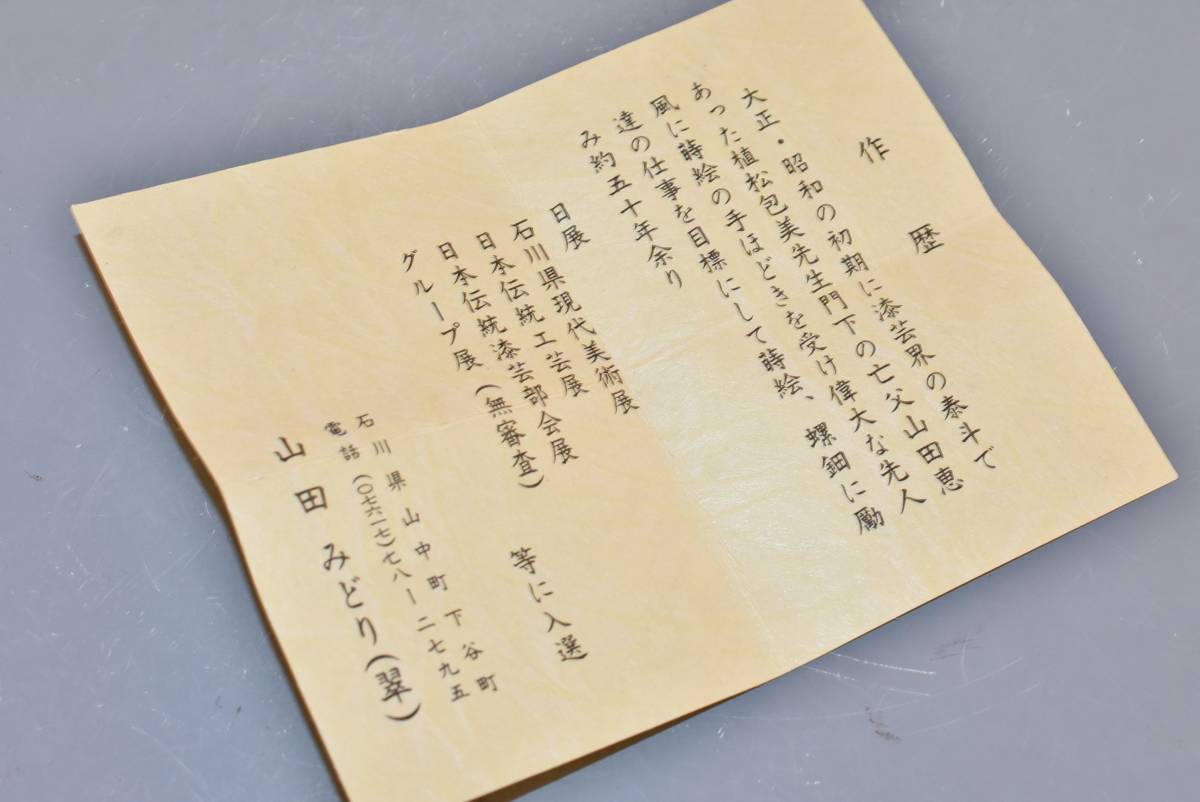 作歴
大正・昭和の初期に漆芸界の泰斗で
あった植松包美先生門下の亡父山田恵
風に蒔絵の手ほどきを受け偉大な先人
達の仕事を目標にして蒔絵、螺鈿に励
み約五十年余り
日展
石川県現代美術展
日本伝統工芸展
日本伝統漆芸部会展
(無審査)
グループ展
等に入選
石川県山中町下谷町
電話(〇七六一七)七八ー二七九五
山田みどり(翠)